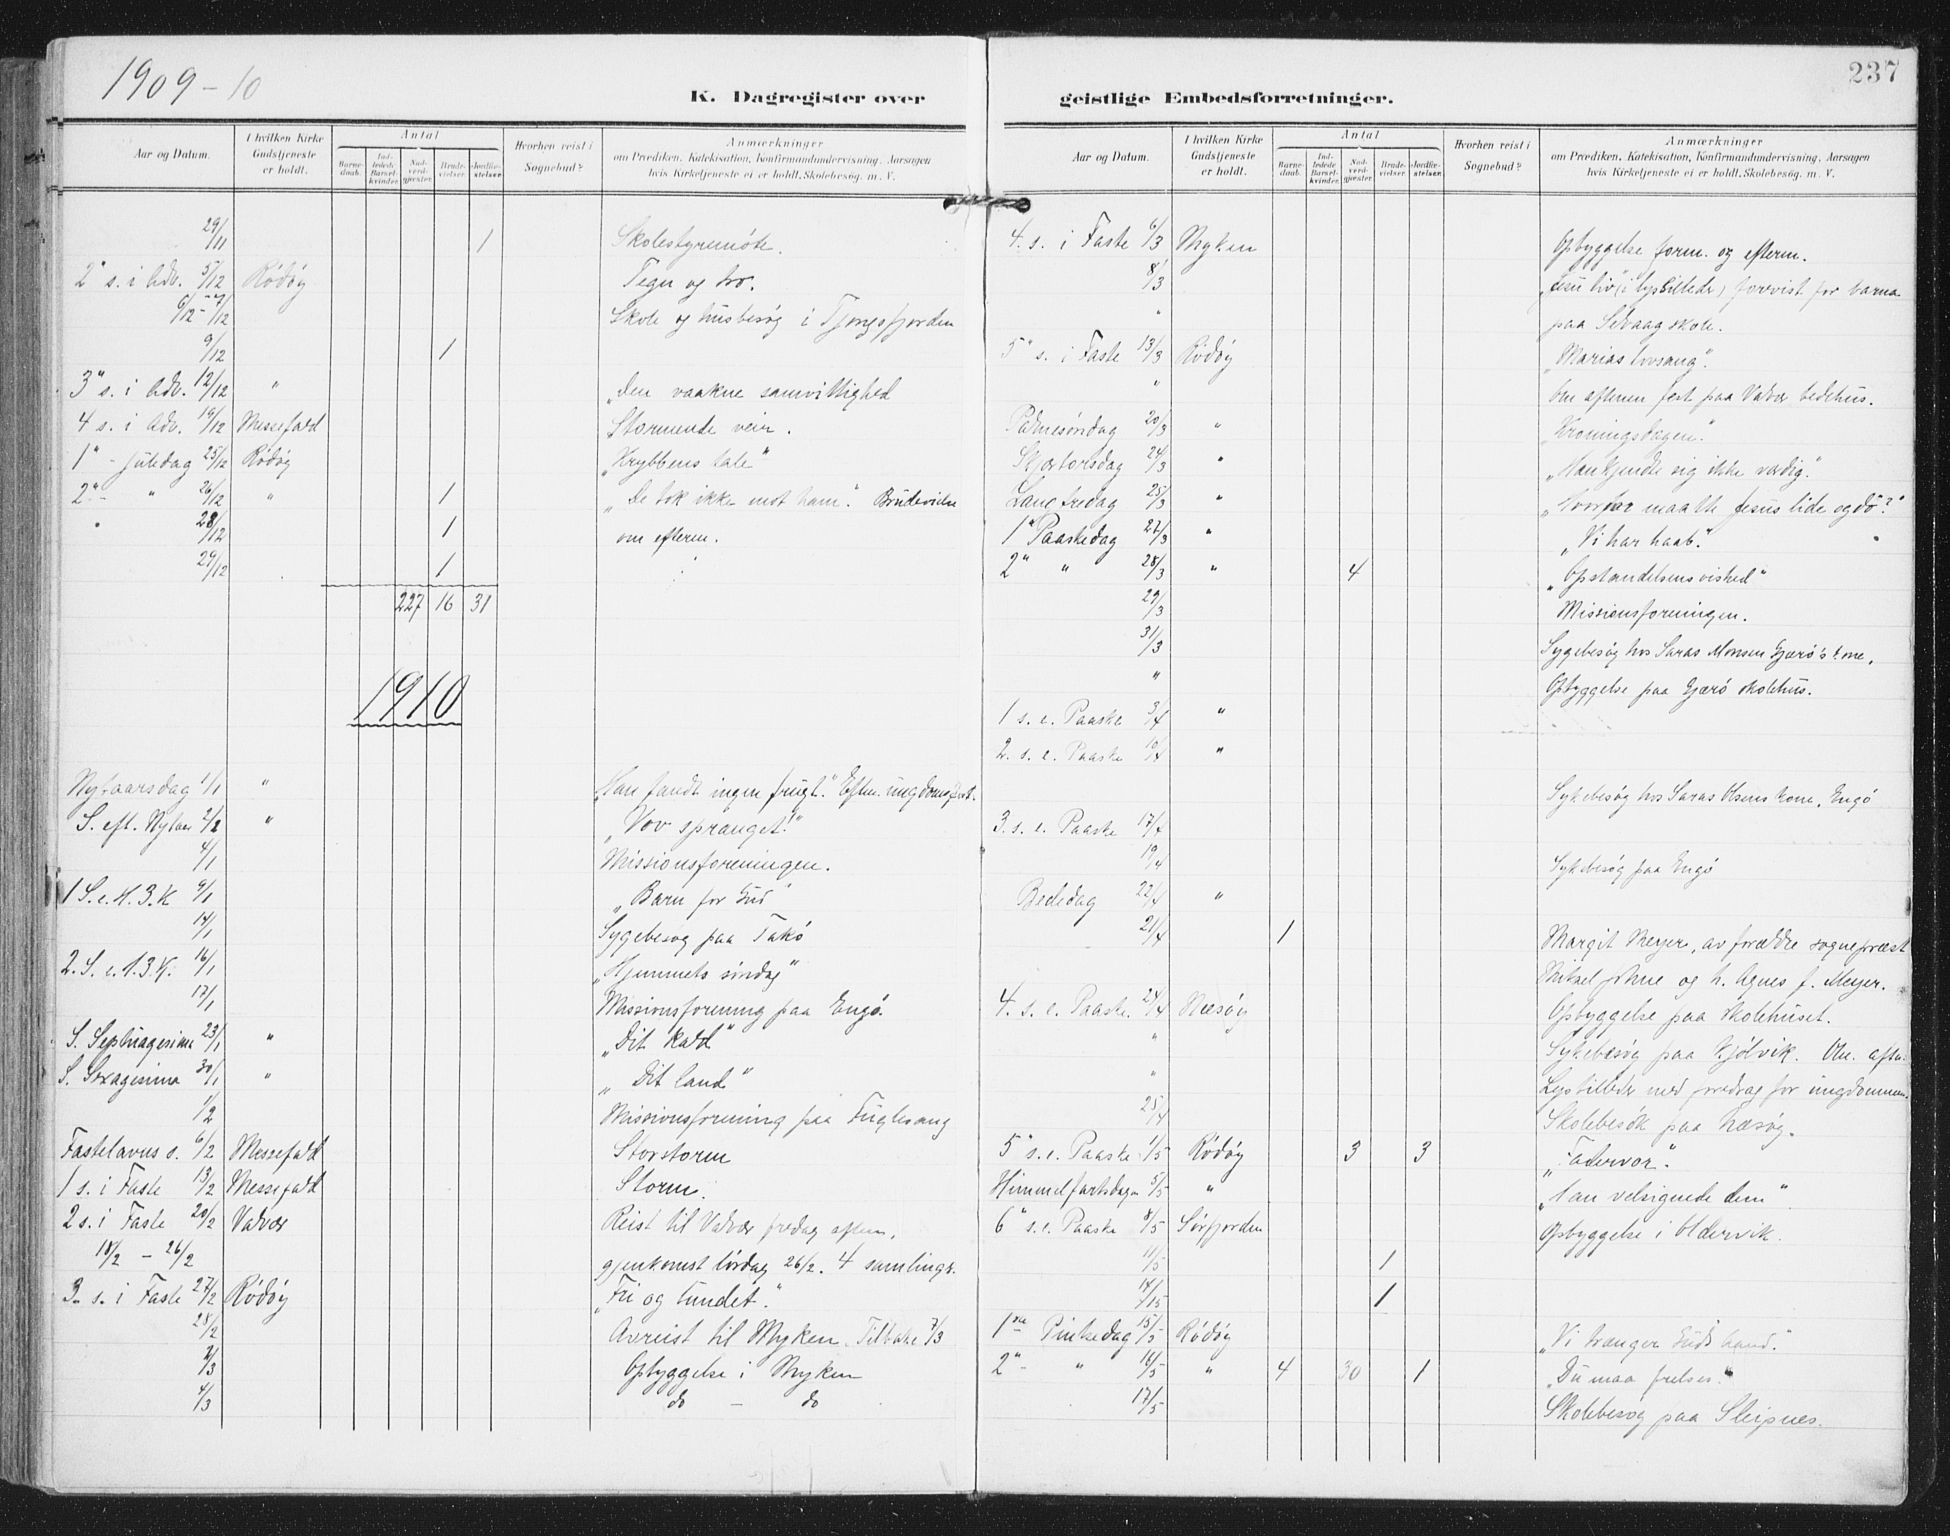 1909-10
237
K. Dagregister over geistlige Embedsforretninger.
Aar og Datum. I hvilken Kirke Gudstjeneste er holdt. Antal Barnedaab. Indledede Barselkvinder. Nadverdgjester. Brudevielser. Jordfæstelser. Hvorhen reist i Sognebud? Anmærkninger om Prædiken, Katekisation, Konfirmandundervisning, Aarsagen hvis Kirketjeneste ei er holdt, Skolebesøg. m. V.
29/11 1 Skolestyremøte.
2" s. i Adv. 5/12 Rödöy Tegn og tro.
6/12 - 7/12 Skole og husbesøg i Tjongsfjorden
9/12 1
3" s. i Adv. 12/12 " "Den vaakne samvittighed
4 s. i Adv. 19/12 Messefald Stormende veir.
1" - juledag 25/12 Rödöy "Krybbens tale"
2" - " 26/12 " 1 "De tok ikke mot ham". Brudevielse
" 28/12 1 om efterm.
29/12 1
227 16 31
1910
Nytaarsdag 1/1 " "Han fandt ingen frugt." Efter. ungdomsfest.
S. eft. Nytaar 2/2 " "Vov spranget!"
4/1 Missionsforeningen.
1 S. e. H. 3. K 9/1 "Barn for Gud"
14/1 Sygebesøg paa
2. S. e. H. 3. K. 16/1 "Hjemmets søndag"
17/1 Missionsforening paa Engö.
S. Septuagesima 23/1 " "Dit kald"
S. Sexagesima 30/1 " "Dit land"
1/2 Missionsforening paa Fuglesang
Fastelavns s. 6/2 Messefald Storstorm
1 s. i Faste 13/2 Messefald Storm.
2 s. i Faste 20/2 Valvær Reist til Valvær fredag aften,
18/2 - 26/2 gjenkomst lördag 26/2. 4 samlinger.
3. s. i Faste 27/2 Rödöy "Fri og bundet."
28/2 Avreist til Myken. Tilbake 7/3
2/3 Opbyggelse i Myken
4/3 do - do
Aar og Datum. I hvilken Kirke Gudstjeneste er holdt. Antal Barnedaab. Indledede Barselkvinder. Nadverdgjester. Brudevielser. Jordfæstelser. Hvorhen reist i Sognebud? Anmærkninger om Prædiken, Katekisation, Konfirmandundervisning, Aarsagen hvis Kirketjeneste ei er holdt, Skolebesøg. m. V.
4. s. i Faste 6/3 Myken Opbyggelse form. og efterm.
8/3 "Jesu liv" (i lysbilleder) forevist for barna
" paa Selvaag skole.
5" s. i Faste 13/3 Rödöy "Marias lovsang".
" Om aftenen fest paa Valvær bedehus.
Palmesöndag 20/3 " "Kroningsdagen."
Skjærtorsdag 24/3 " "Han kjendte sig ikke værdig."
Langfredag 25/3 " "Hvorfor maatte Jesus lide og dö?"
1" Paaskedag 27/3 " "Vi har haab."
2" " 28/3 " 4 "Opstandelsens vished"
29/3 Missionsforeningen.
31/3 Sygebesög hos Saras Monsen Gjærö's kone.
" Opbyggelse paa Gjærö skolehus.
1 s. e. Paaske 3/4 "
2. s. e. Paaske 10/4 "
Sykebesög hos Saras Olsens kone, Engö
3. s. e. Paaske 17/4
19/4 Sykebesög paa Engö
Bededag 22/4 "
21/4 1 Margit Meyer, av forældre sogneprest
og h. Agnes f. Meyer.
4. s. e. Paaske. 24/4 Næsöy Opbyggelse paa Skolehuset.
" Sykebesög paa Kjölvik. Om aften:
" Lysbilleder med foredrag for ungdommen.
25/4 Skolebesök paa Næsöy.
5" s. e. Paaske 1/5 Rödöy 3 3 "Fadervor".
Himmelfartsdagen 5/5 " "Han velsignede dem"
6" s. e. Paaske 8/5 Sörfjorden Opbyggelse i Oldervik.
11/5 1
14/5 1
1ste Pintsedag 15/5 Rödöy "Vi trænger Guds haand."
2" - " 16/5 " 4 30 1 "Du maa frelses."
17/5 Skolebesøg paa Sleipnes.